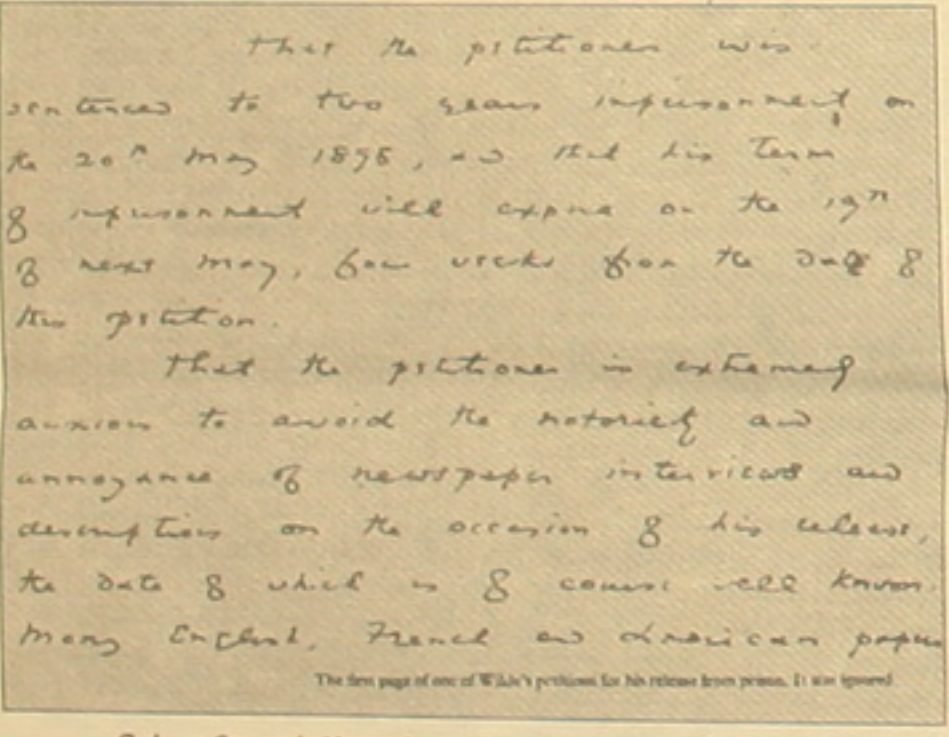 That the petitioner was
sentenced to two years imprisonment on
the 20th May 1895, and that his term
of imprisonment will expire on the 19th
of next May, four weeks from the date of
this petition.
That the petitioner is extremely
anxious to avoid the notoriety and
annoyance of newspaper interviews and
descriptions on the occasion of his release,
the date of which is of course well known.
Many English, French and American papers
The first page of one of Wilde's petitions for his release from prison. It was ignored